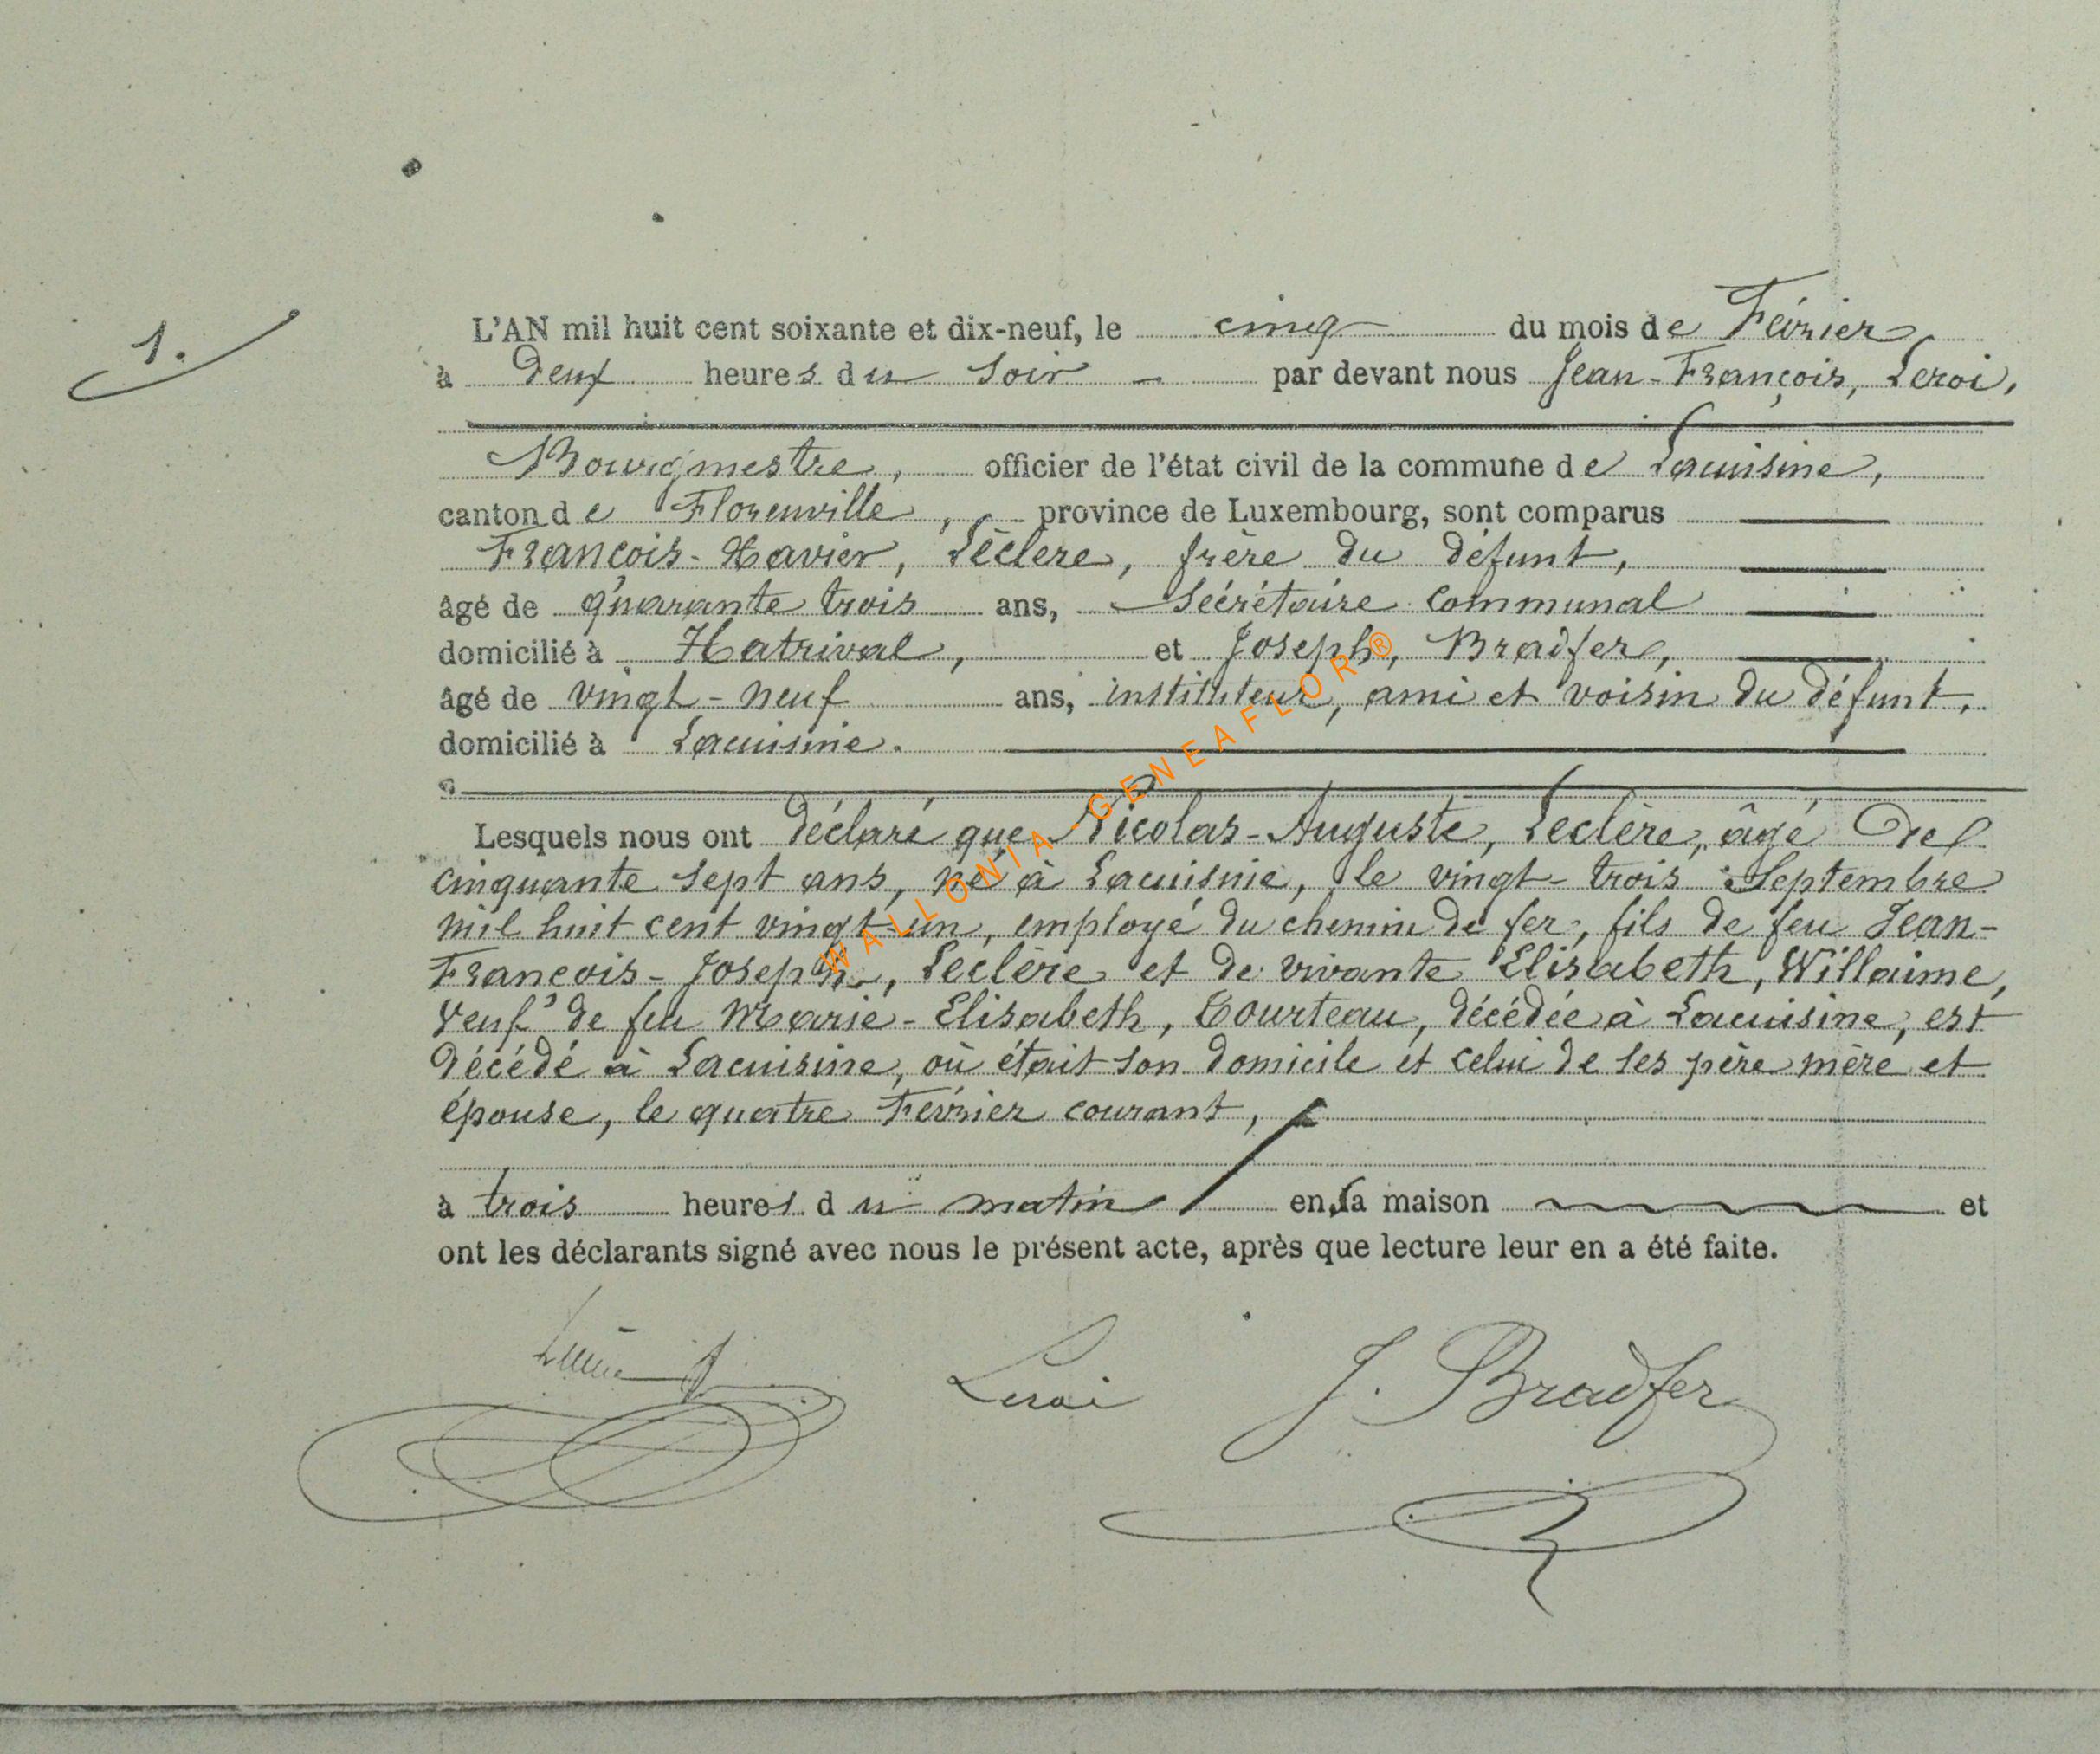 1.
L'AN mil huit cent soixante et dix-neuf, le cinq du mois de Février
à deux heures du soir par devant nous Jean-François, Leroi,
Bourgmestre, officier de l'état civil de la commune de Lacuisine,
canton de Florenville, province de Luxembourg, sont comparus
François-Xavier, Léclere, frère du défunt,
âgé de quarante trois ans, Sécrétaire communal
domicilié à Hatrival, et Joseph, Bradfer,
âgé de vingt-neuf ans, instituteur, ami et voisin du défunt,
domicilié à Lacuisine.
Lesquels nous ont déclaré que Nicolas-Auguste, Leclère, âgé de
cinquante sept ans, né à Lacuisine, le vingt-trois Septembre
mil huit cent vingt-un, employé du chemin de fer, fils de feu Jean-
François-Joseph, Leclère et de vivante Elisabeth, Willaime,
veuf de feu Marie-Elisabeth, Tourteau, décédée à Lacuisine, est
décédé à Lacuisine, où était son domicile et celui de ses père mère et
épouse, le quatre Février courant,
à trois heures du matin en sa maison et
ont les déclarants signé avec nous le présent acte, après que lecture leur en a été faite.
Leroi J. Bradfer
WALLONIA-GENEAFLOR®